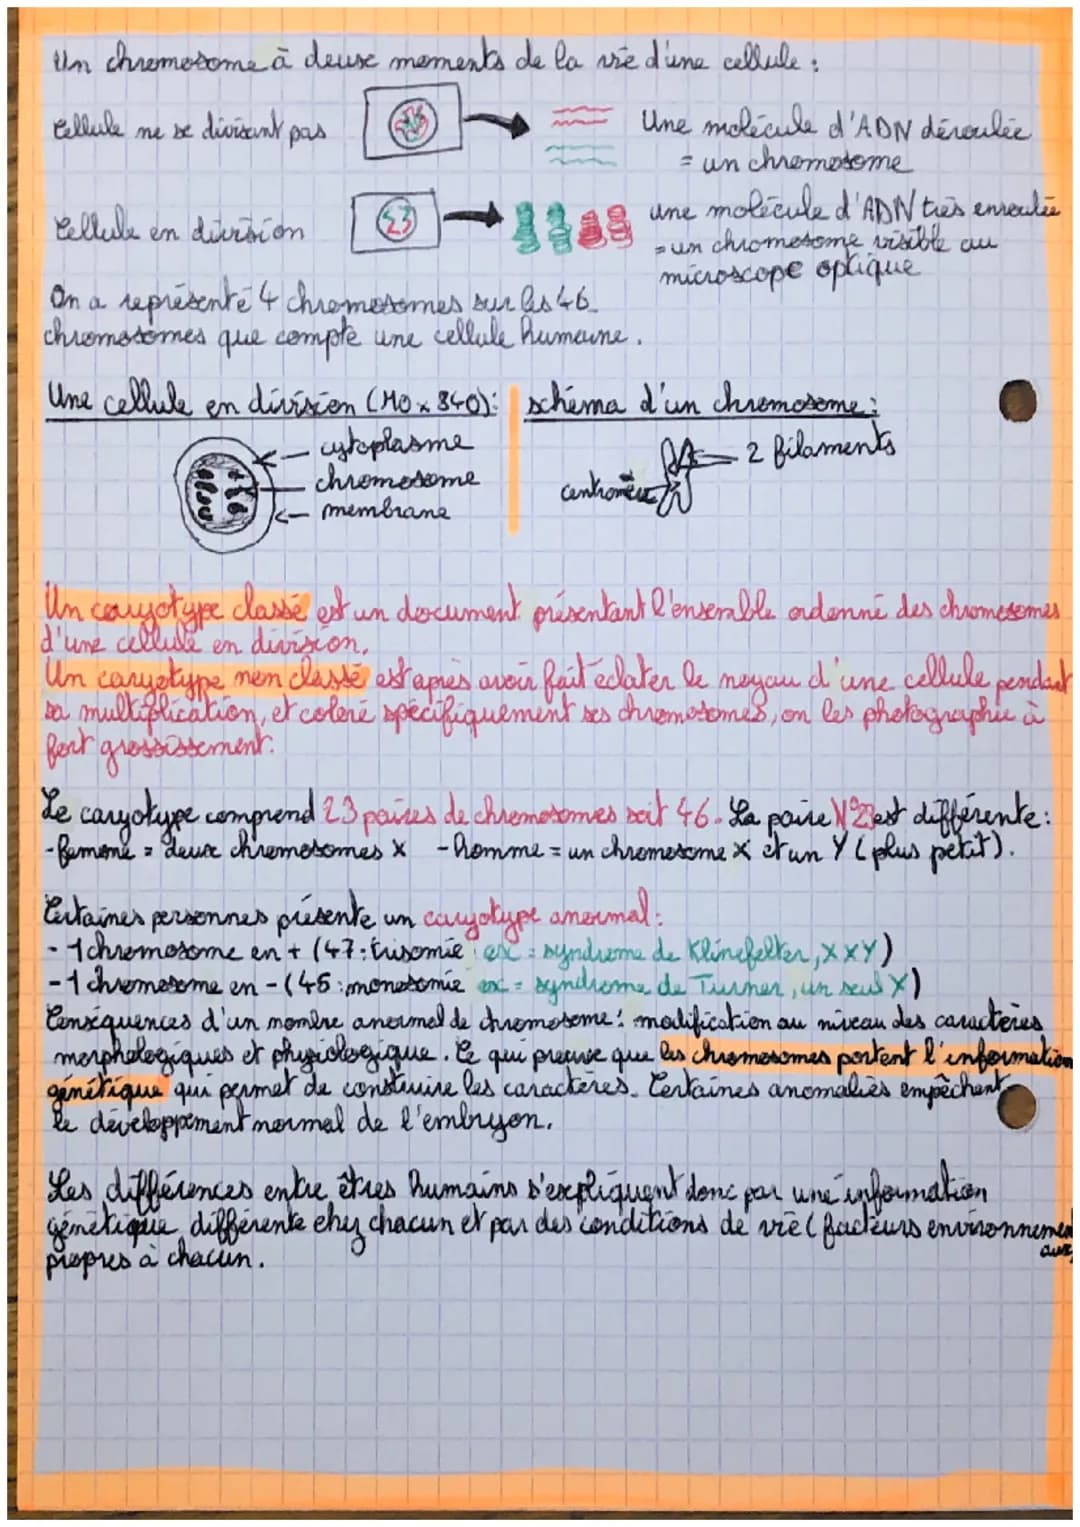 Un chromosome à deux moments de la vie d'une cellule :
Cellule ne se divisant pas
Une molécule d'ADN déroulée
= un chromosome
Cellule en division
une molécule d'ADN très enroulée
= un chromosome visible au
microscope optique
On a représenté 4 chromosomes sur les 46
chromosomes que compte une cellule humaine.
Une cellule en division (MO x 340):
cytoplasme
chromosome
membrane
schéma d'un chromosome :
2 filaments
centromère
Un caryotype classé est un document présentant l'ensemble ordonné des chromosomes
d'une cellule en division.
Un caryotype non classé est après avoir fait éclater le noyau d'une cellule pendant
sa multiplication, et coloré spécifiquement ses chromosomes, on les photographie à
fort grossissement.
Le caryotype comprend 23 paires de chromosomes soit 46. La paire N°23 est différente :
- femme = deux chromosomes X - homme = un chromosome X et un Y (plus petit).
Certaines personnes présente un caryotype anormal :
- 1 chromosome en + (47 : trisomie ex = syndrome de Klinefelter, XXY)
- 1 chromosome en - (45 : monosomie ex = syndrome de Turner, un seul X)
Conséquences d'un nombre anormal de chromosome : modification au niveau des caractères
morphologiques et physiologique. Ce qui preuve que les chromosomes portent l'information
génétique qui permet de construire les caractères. Certaines anomalies empêchent
le développement normal de l'embryon.
Les différences entre êtres humains s'expliquent donc par une information
génétique différente chez chacun et par des conditions de vie (facteurs environnemen
aux)
propres à chacun.